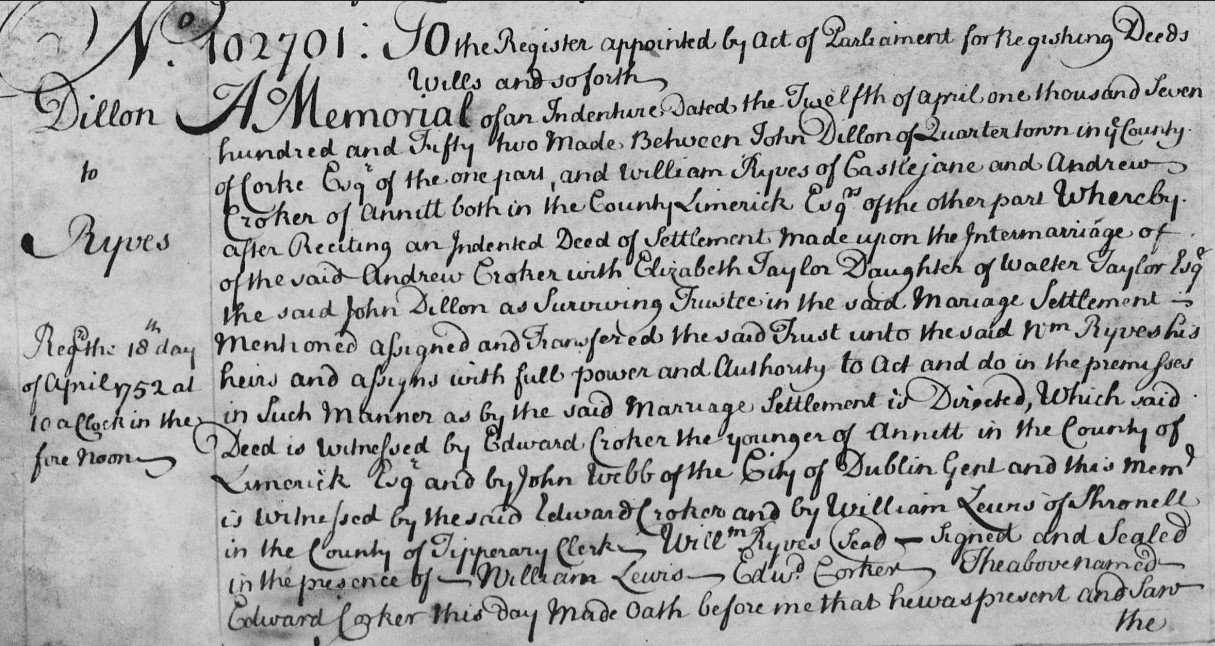 No. 102701: To the Register appointed by Act of Parliament for Regishing Deeds
Wills and so forth
Dillon
to
Ryves
Regd the 18th day
of April 1752 at
10 a Clock in the
fore Noon
A Memorial of an Indenture Dated the Twelfth of April one thousand Seven
hundred and Fifty two Made Between John Dillon of Quartertown in ye County
of Corke Esqr of the one part, and William Ryves of Castlejane and Andrew
Croker of Annitt both in the County Limerick Esqrs of the other part Whereby
after Reciting an Indented Deed of Settlement Made upon the Intermarriage of
of the said Andrew Croker with Elizabeth Taylor Daughter of Walter Taylor Esqr
the said John Dillon as Surviving Trustee in the said Mariage Settlement
Mentioned assigned and Transfered the said Trust unto the said Wm Ryves his
heirs and assigns with full power and Authority to Act and do in the premisses
in Such Manner as by the said Marriage Settlement is Directed, Which said
Deed is Witnessed by Edward Croker the younger of Annitt in the County of
Limerick Esqr and by John Webb of the City of Dublin Gent and this Meml
is Witnessed by the said Edward Croker and by William Lewis of Shronell
in the County of Tipperary Clerk Willm Ryves Seal Signed and Sealed
in the presence of William Lewis Edwd Corker The above named
Edward Corker this day Made Oath before me that he was present and Saw
the